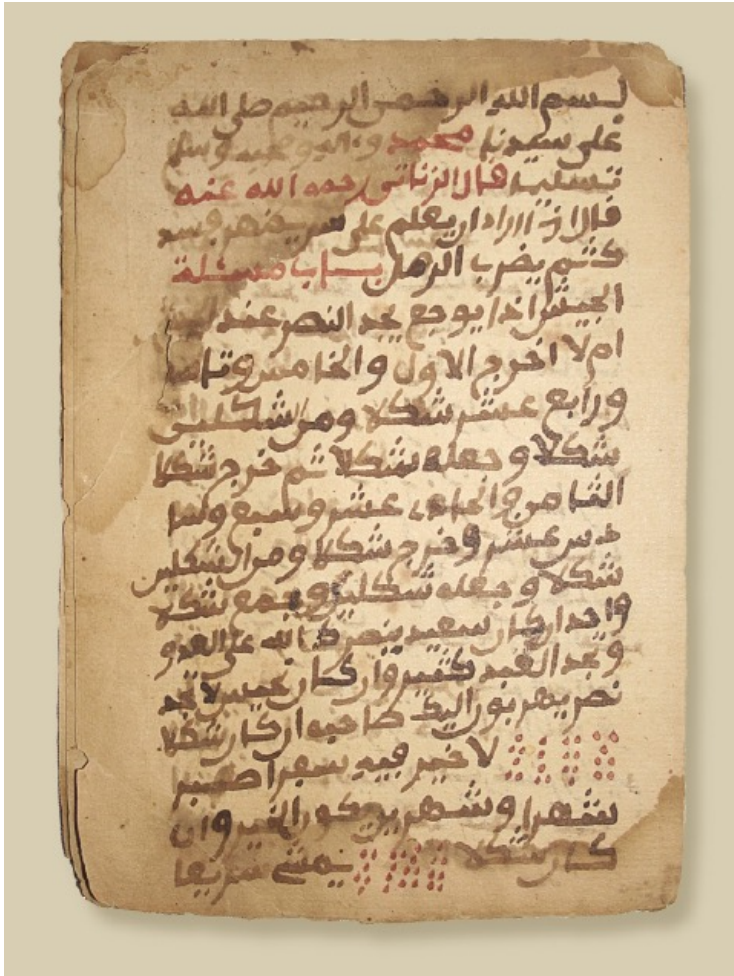 بسم الله الرحمن الرحيم صلى الله
على سيدنا محمد وءاله وصحبه وسلم
تسليما قال الزناتي رحمه الله عنه
قال اذ اراد ان يعلم على
ثم يضرب الرمل باب مسئلة
الجيش اذا يوجع يجد النصر عند
ام لا اخرج الاول والخامس
ورابع عشر شكلا ومن شكلين
شكلا وجعله شكلا ثم خرج شكلا
الثامن والحادي عشر وسبع
عشر وخرج شكلا ومن الشكلين
شكلا وجعله شكلين وجمع شكلا
واحد ان كان سعيد ينصرك الله على العدو
ويجد العبد كثير وان كان نحيس لا يجد
نصر يهربون اليك صاحبه ان كان شكلا
لا خير فيه سفرا
شهرا وشهرين يكون الخير وان
كان شكلا يمشي سريعا